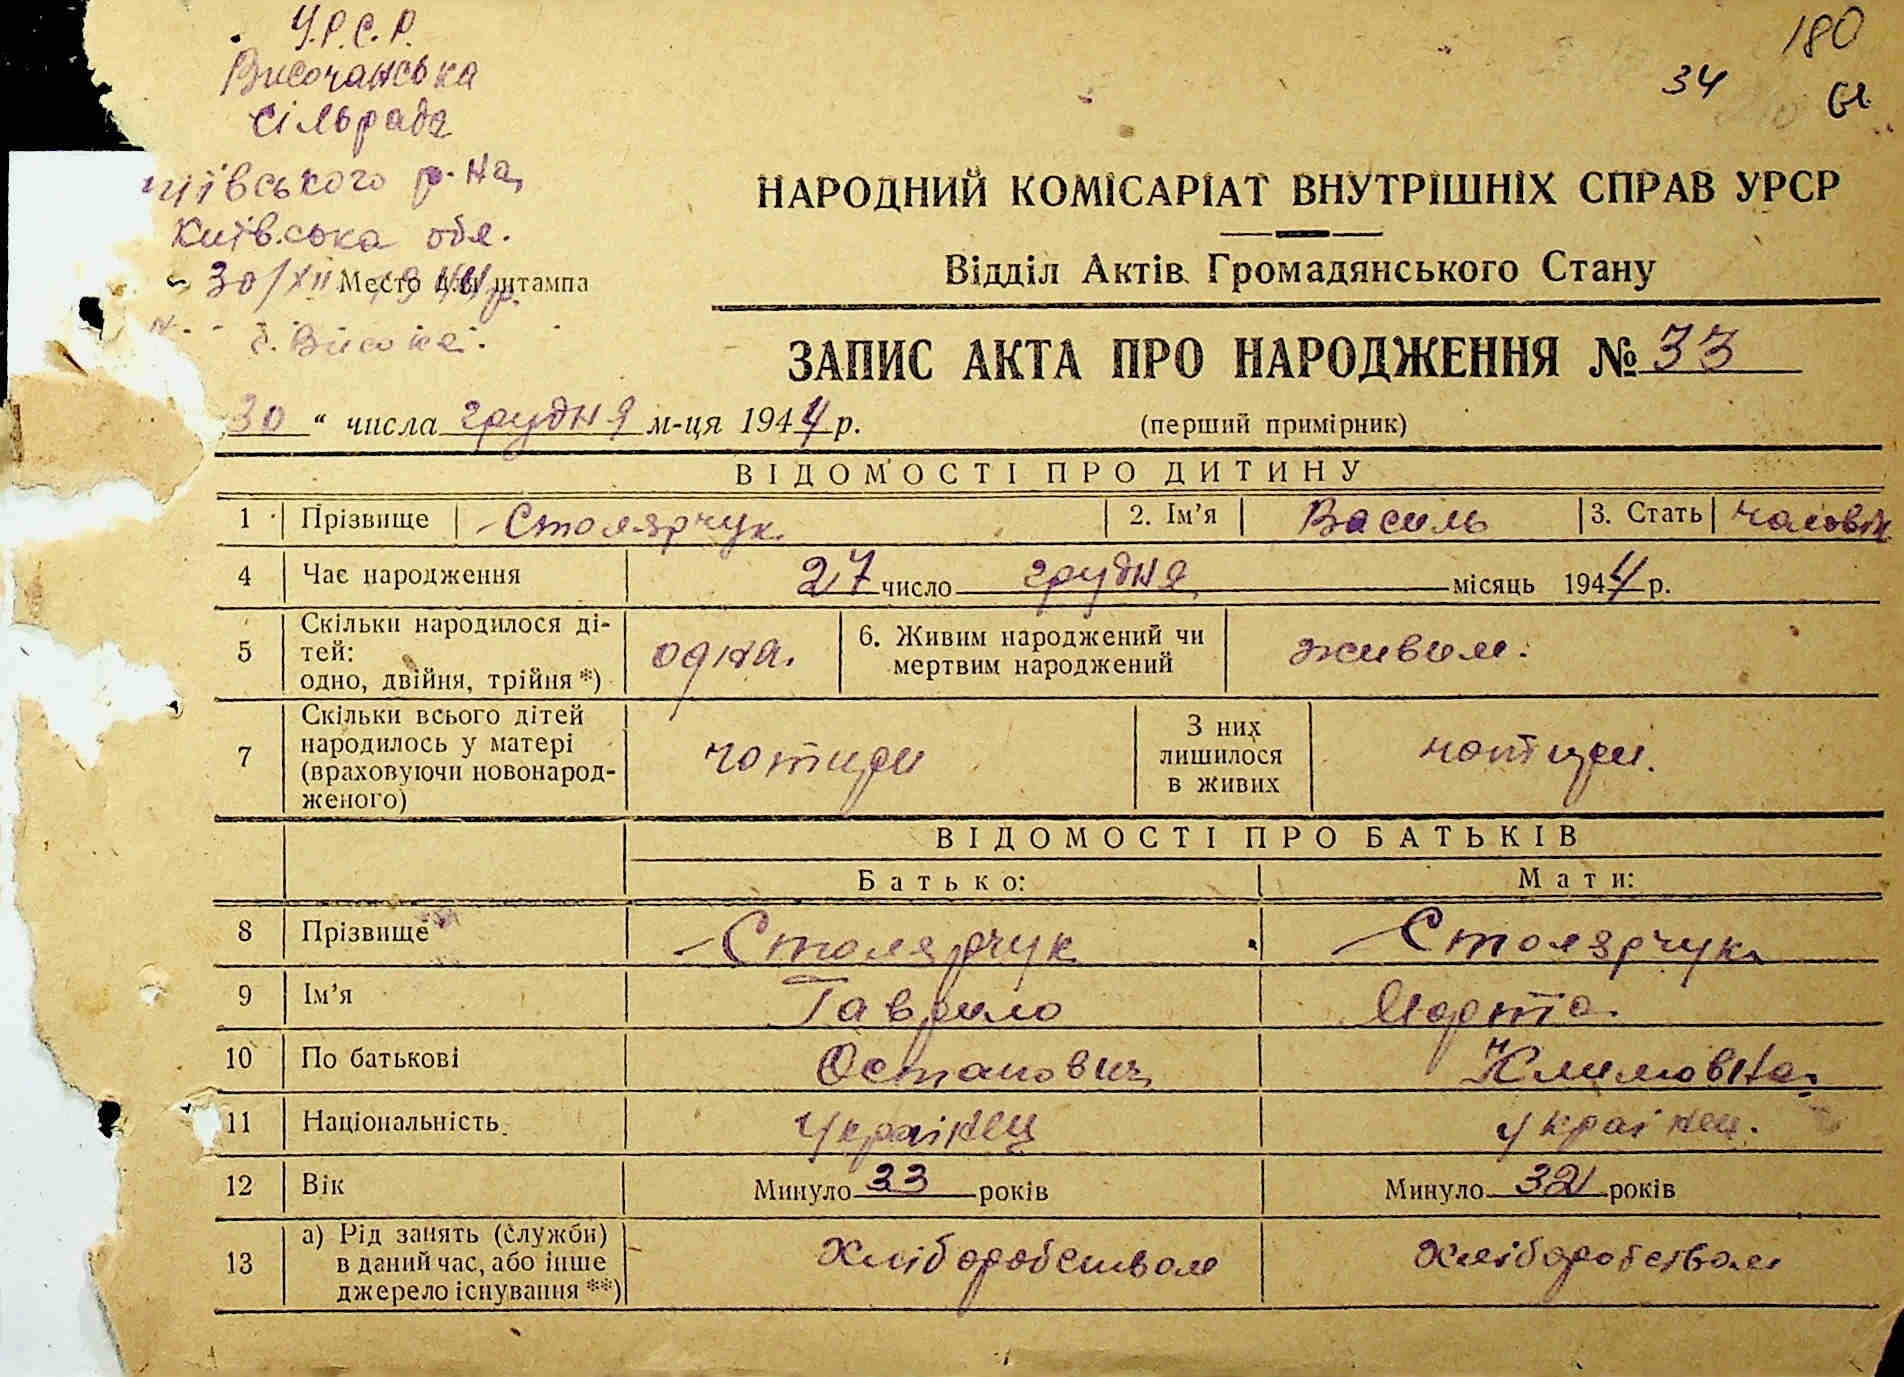 У.Р.С.Р.
Височанська
сільрада
р-на,
Київська обл.
30/XII 1944р. Место для штампа
с. Високе.
180
34
НАРОДНИЙ КОМІСАРІАТ ВНУТРІШНІХ СПРАВ УРСР
Відділ Актів Громадянського Стану
ЗАПИС АКТА ПРО НАРОДЖЕННЯ № 33
30 " числа грудня м-ця 1944 р. (перший примірник)
ВІДОМОСТІ ПРО ДИТИНУ
1 Прізвище Столярчук 2. Ім'я Василь 3. Стать чоловік
4 Час народження 27 число грудня місяць 1944 р.
5 Скільки народилося ді-
тей:
одно, двійня, трійня *) одна. 6. Живим народжений чи
мертвим народжений живим.
7 Скільки всього дітей
народилось у матері
(враховуючи новонарод-
женого) чотири З них
лишилося
в живих чотири.
ВІДОМОСТІ ПРО БАТЬКІВ
Батько: Мати:
8 Прізвище Столярчук Столярчук
9 Ім'я Гаврило Марта.
10 По батькові Остапович Климовна.
11 Національність українец українец.
12 Вік Минуло 33 років Минуло 32 років
13 а) Рід занять (служби)
в даний час, або інше
джерело існування **) хліборобством хліборобством